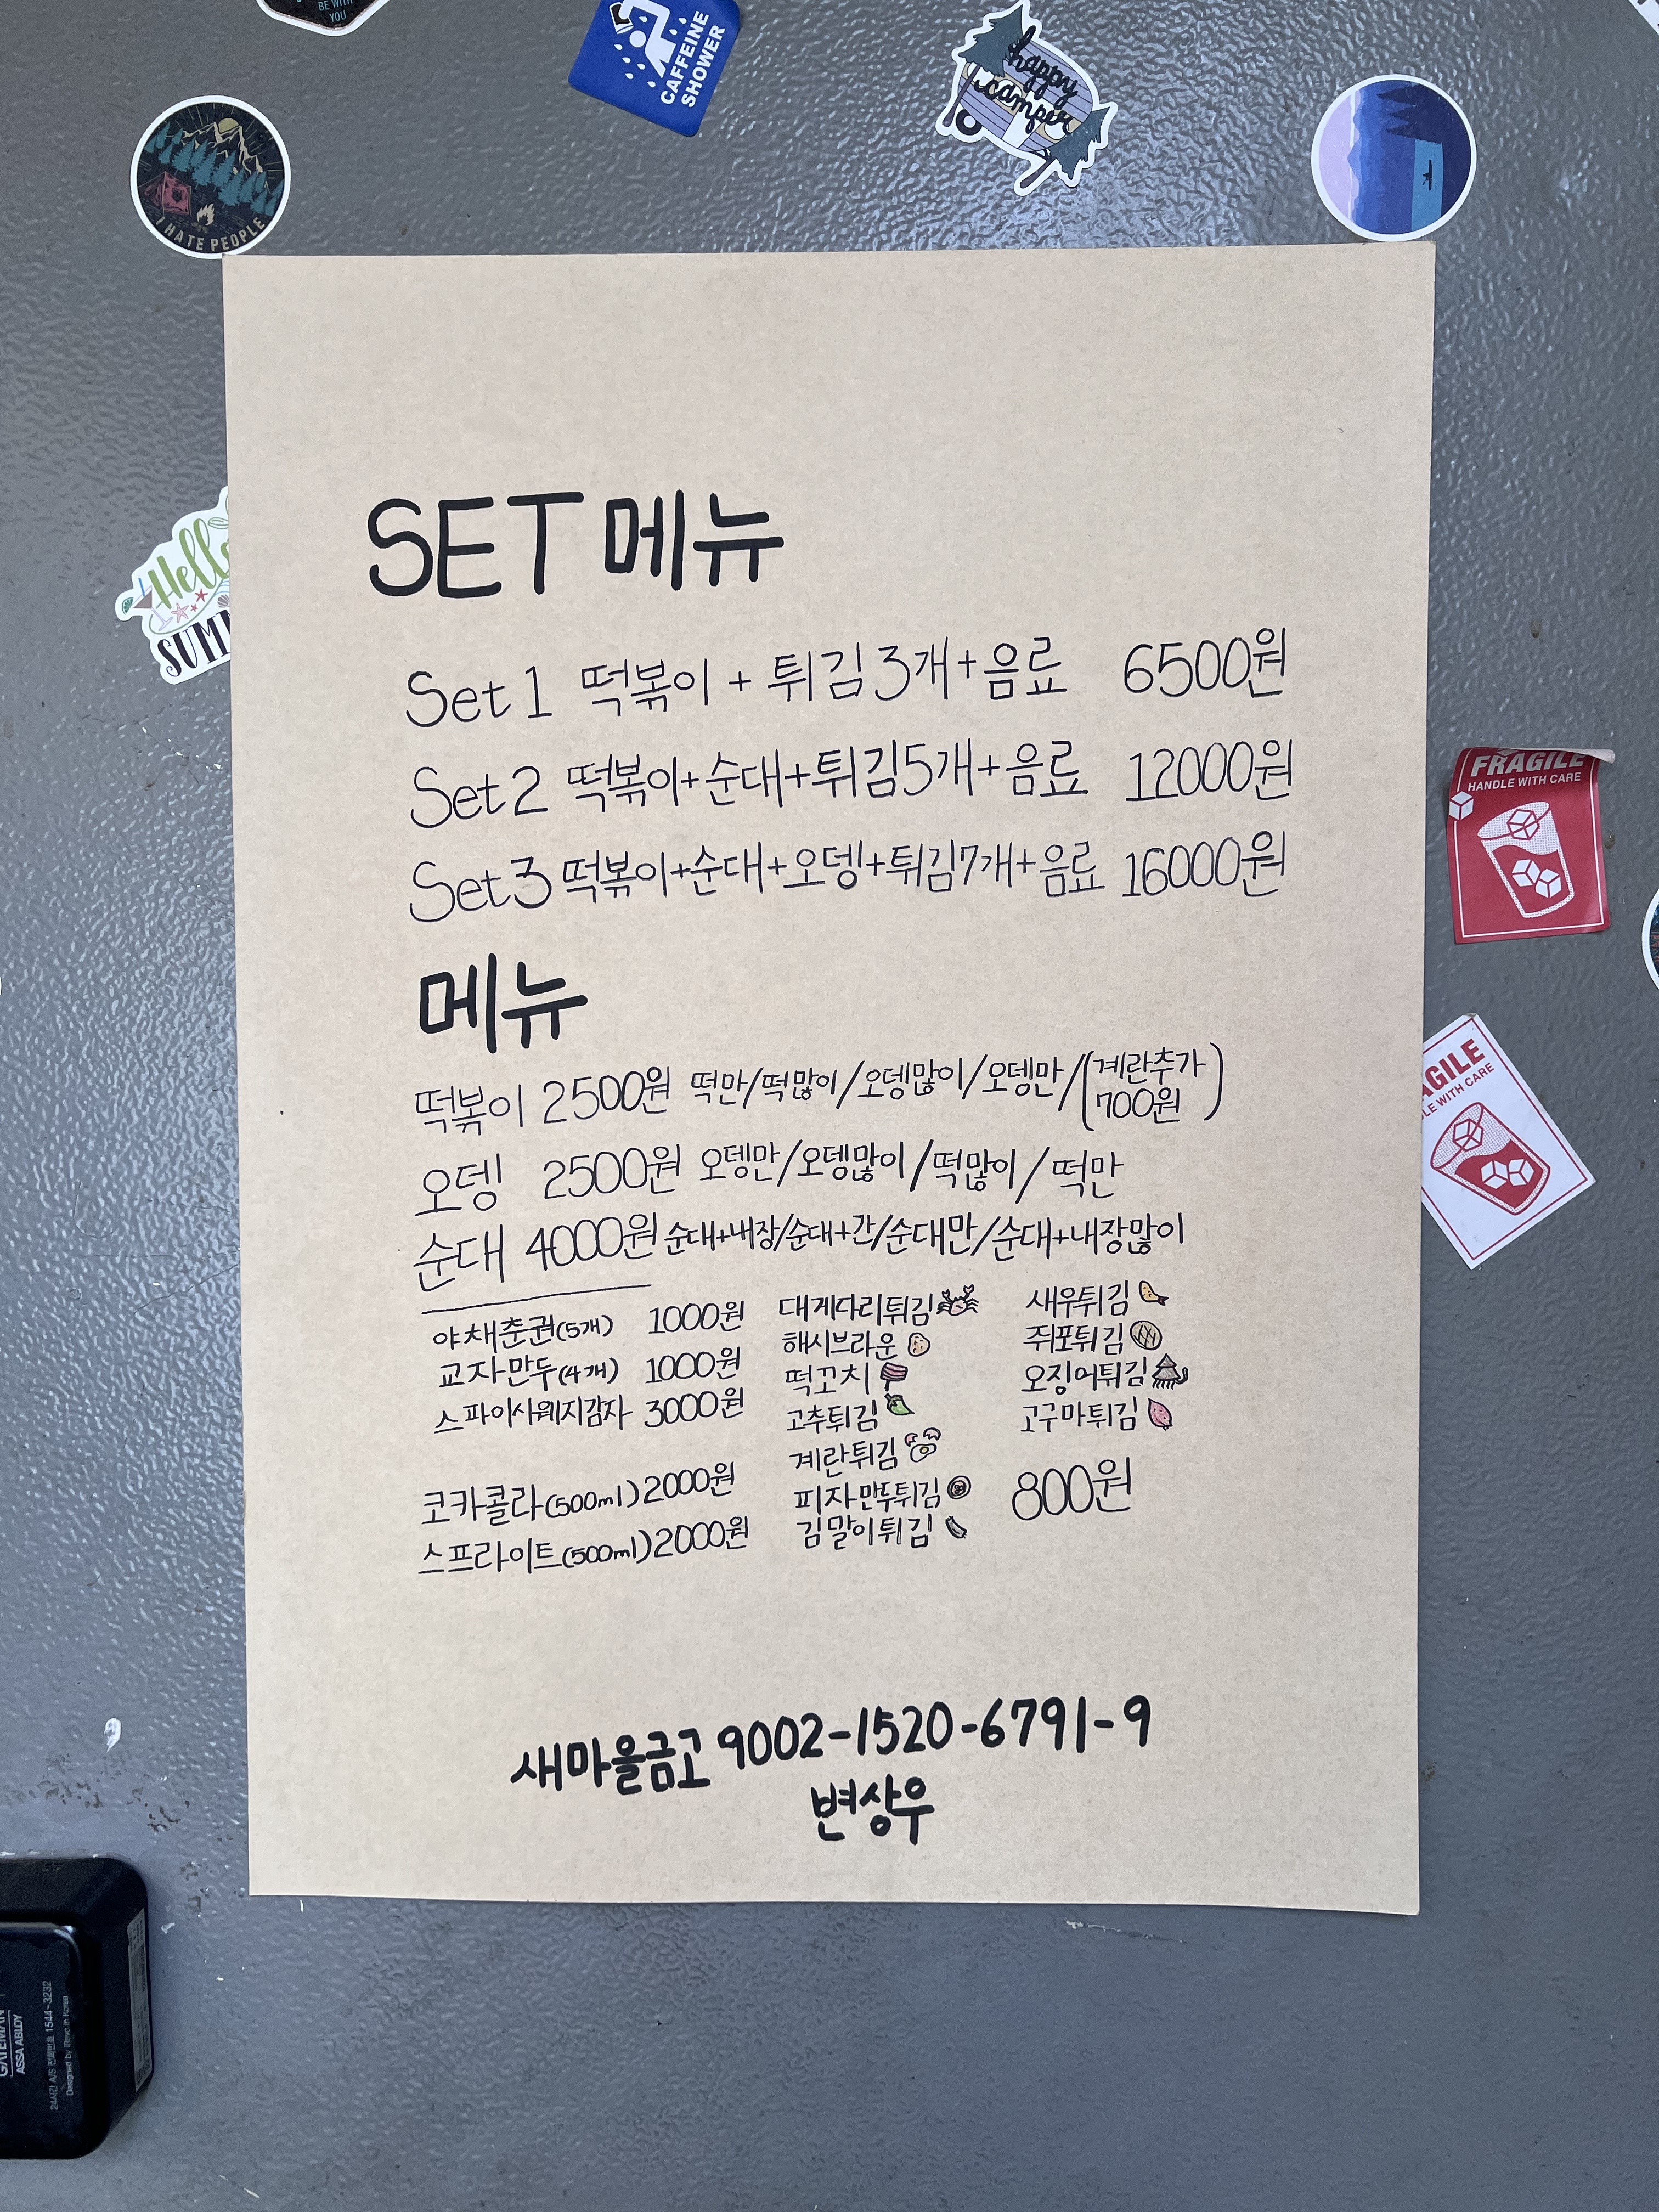 BE WITH
YOU
CAFFEINE
SHOWER
happy
camper
I HATE PEOPLE
SET 메뉴
Set 1 떡볶이 + 튀김 3개+음료 6500원
Set 2 떡볶이+순대+튀김5개+음료 12000원
Set 3 떡볶이+순대+오뎅+튀김7개+음료 16000원
Hello
SUMM
FRAGILE
HANDLE WITH CARE
메뉴
떡볶이 2500원 떡만/떡많이/오뎅많이/오뎅만/(계란추가
700원)
오뎅 2500원 오뎅만/오뎅많이/떡많이/떡만
순대 4000원 순대+내장/순대+간/순대만/순대+내장많이
AGILE
LE WITH CARE
야채춘권(5개) 1000원
교자만두(4개) 1000원
스파이사웨지감자 3000원
코카콜라(500ml) 2000원
스프라이트(500ml) 2000원
대게다리튀김
해시브라운
떡꼬치
고추튀김
계란튀김
피자만두튀김
김말이튀김
새우튀김
쥐포튀김
오징어튀김
고구마튀김
800원
새마을금고 9002-1520-6791-9
변상우
GATEMAN
ASSA ABLOY
24시간 A/S 전화번호 1544-3232
Designed by iRevo in Korea